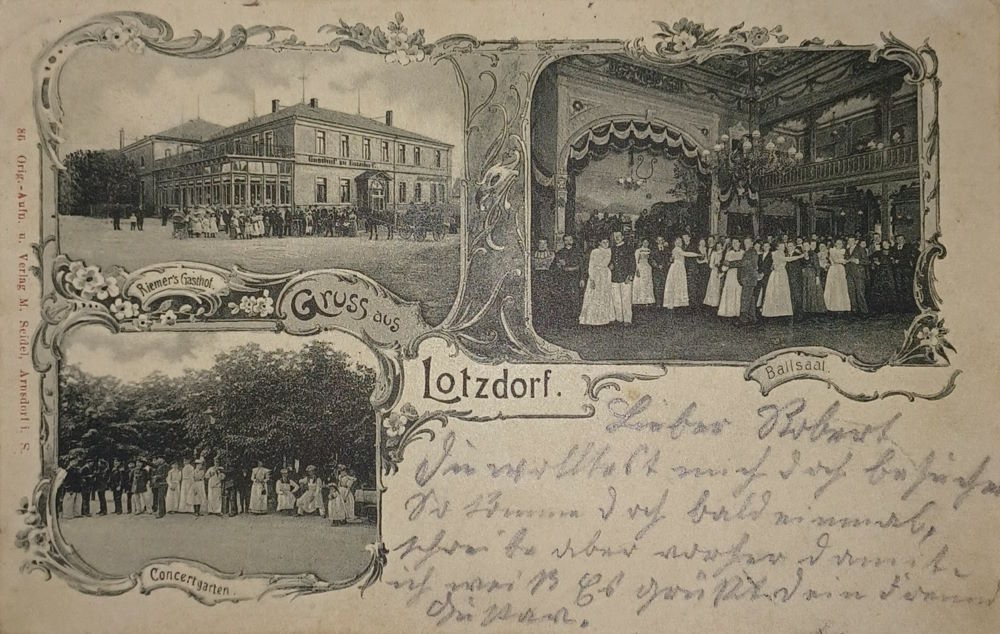 86 Orig.-Aufn. u. Verlag M. Seidel, Arnsdorf i. S.
Gasthof zur
Riemer's Gasthof.
Gruss aus
Lotzdorf.
Ballsaal.
Concertgarten.
Lieber Robert
Du wolltest mich doch besuchen
So komme doch bald einmal,
schreibe aber vorher damit
ich weiß Es grüßt dein Freund
Gustav.